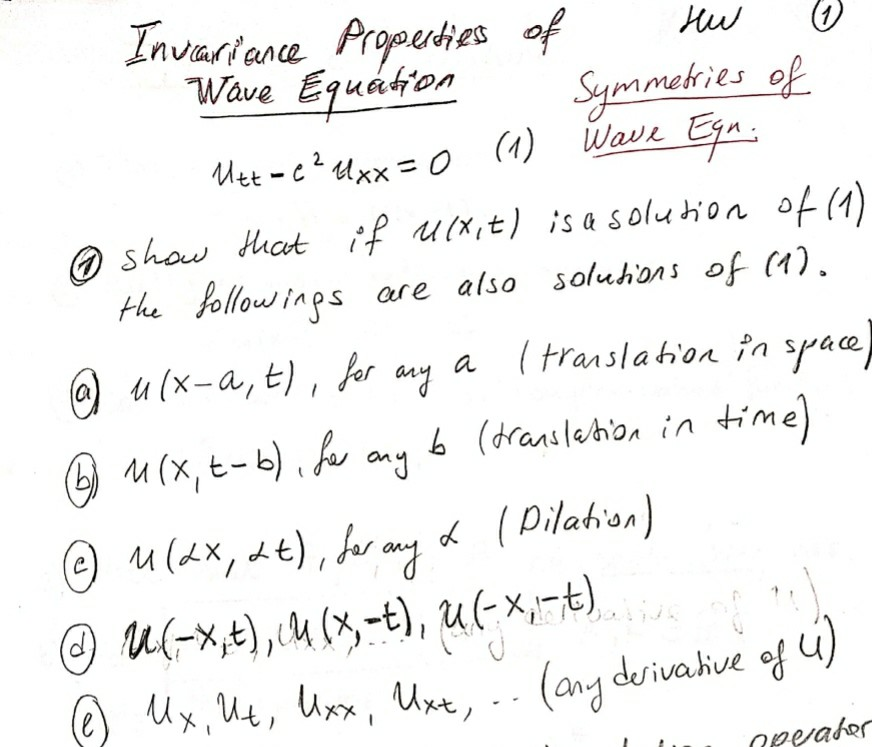 Invariance Properties of HW ①
Wave Equation
Symmetries of
Wave Eqn.
u_tt - c² u_xx = 0 (1)
① show that if u(x,t) is a solution of (1)
the followings are also solutions of (1).
ⓐ u(x-a, t), for any a (translation in space)
ⓑ u(x, t-b), for any b (translation in time)
ⓒ u(αx, αt), for any α (Dilation)
ⓓ u(-x,t), u(x,-t), u(-x,-t)
ⓔ u_x, u_t, u_xx, u_xt, .. (any derivative of u)
operator